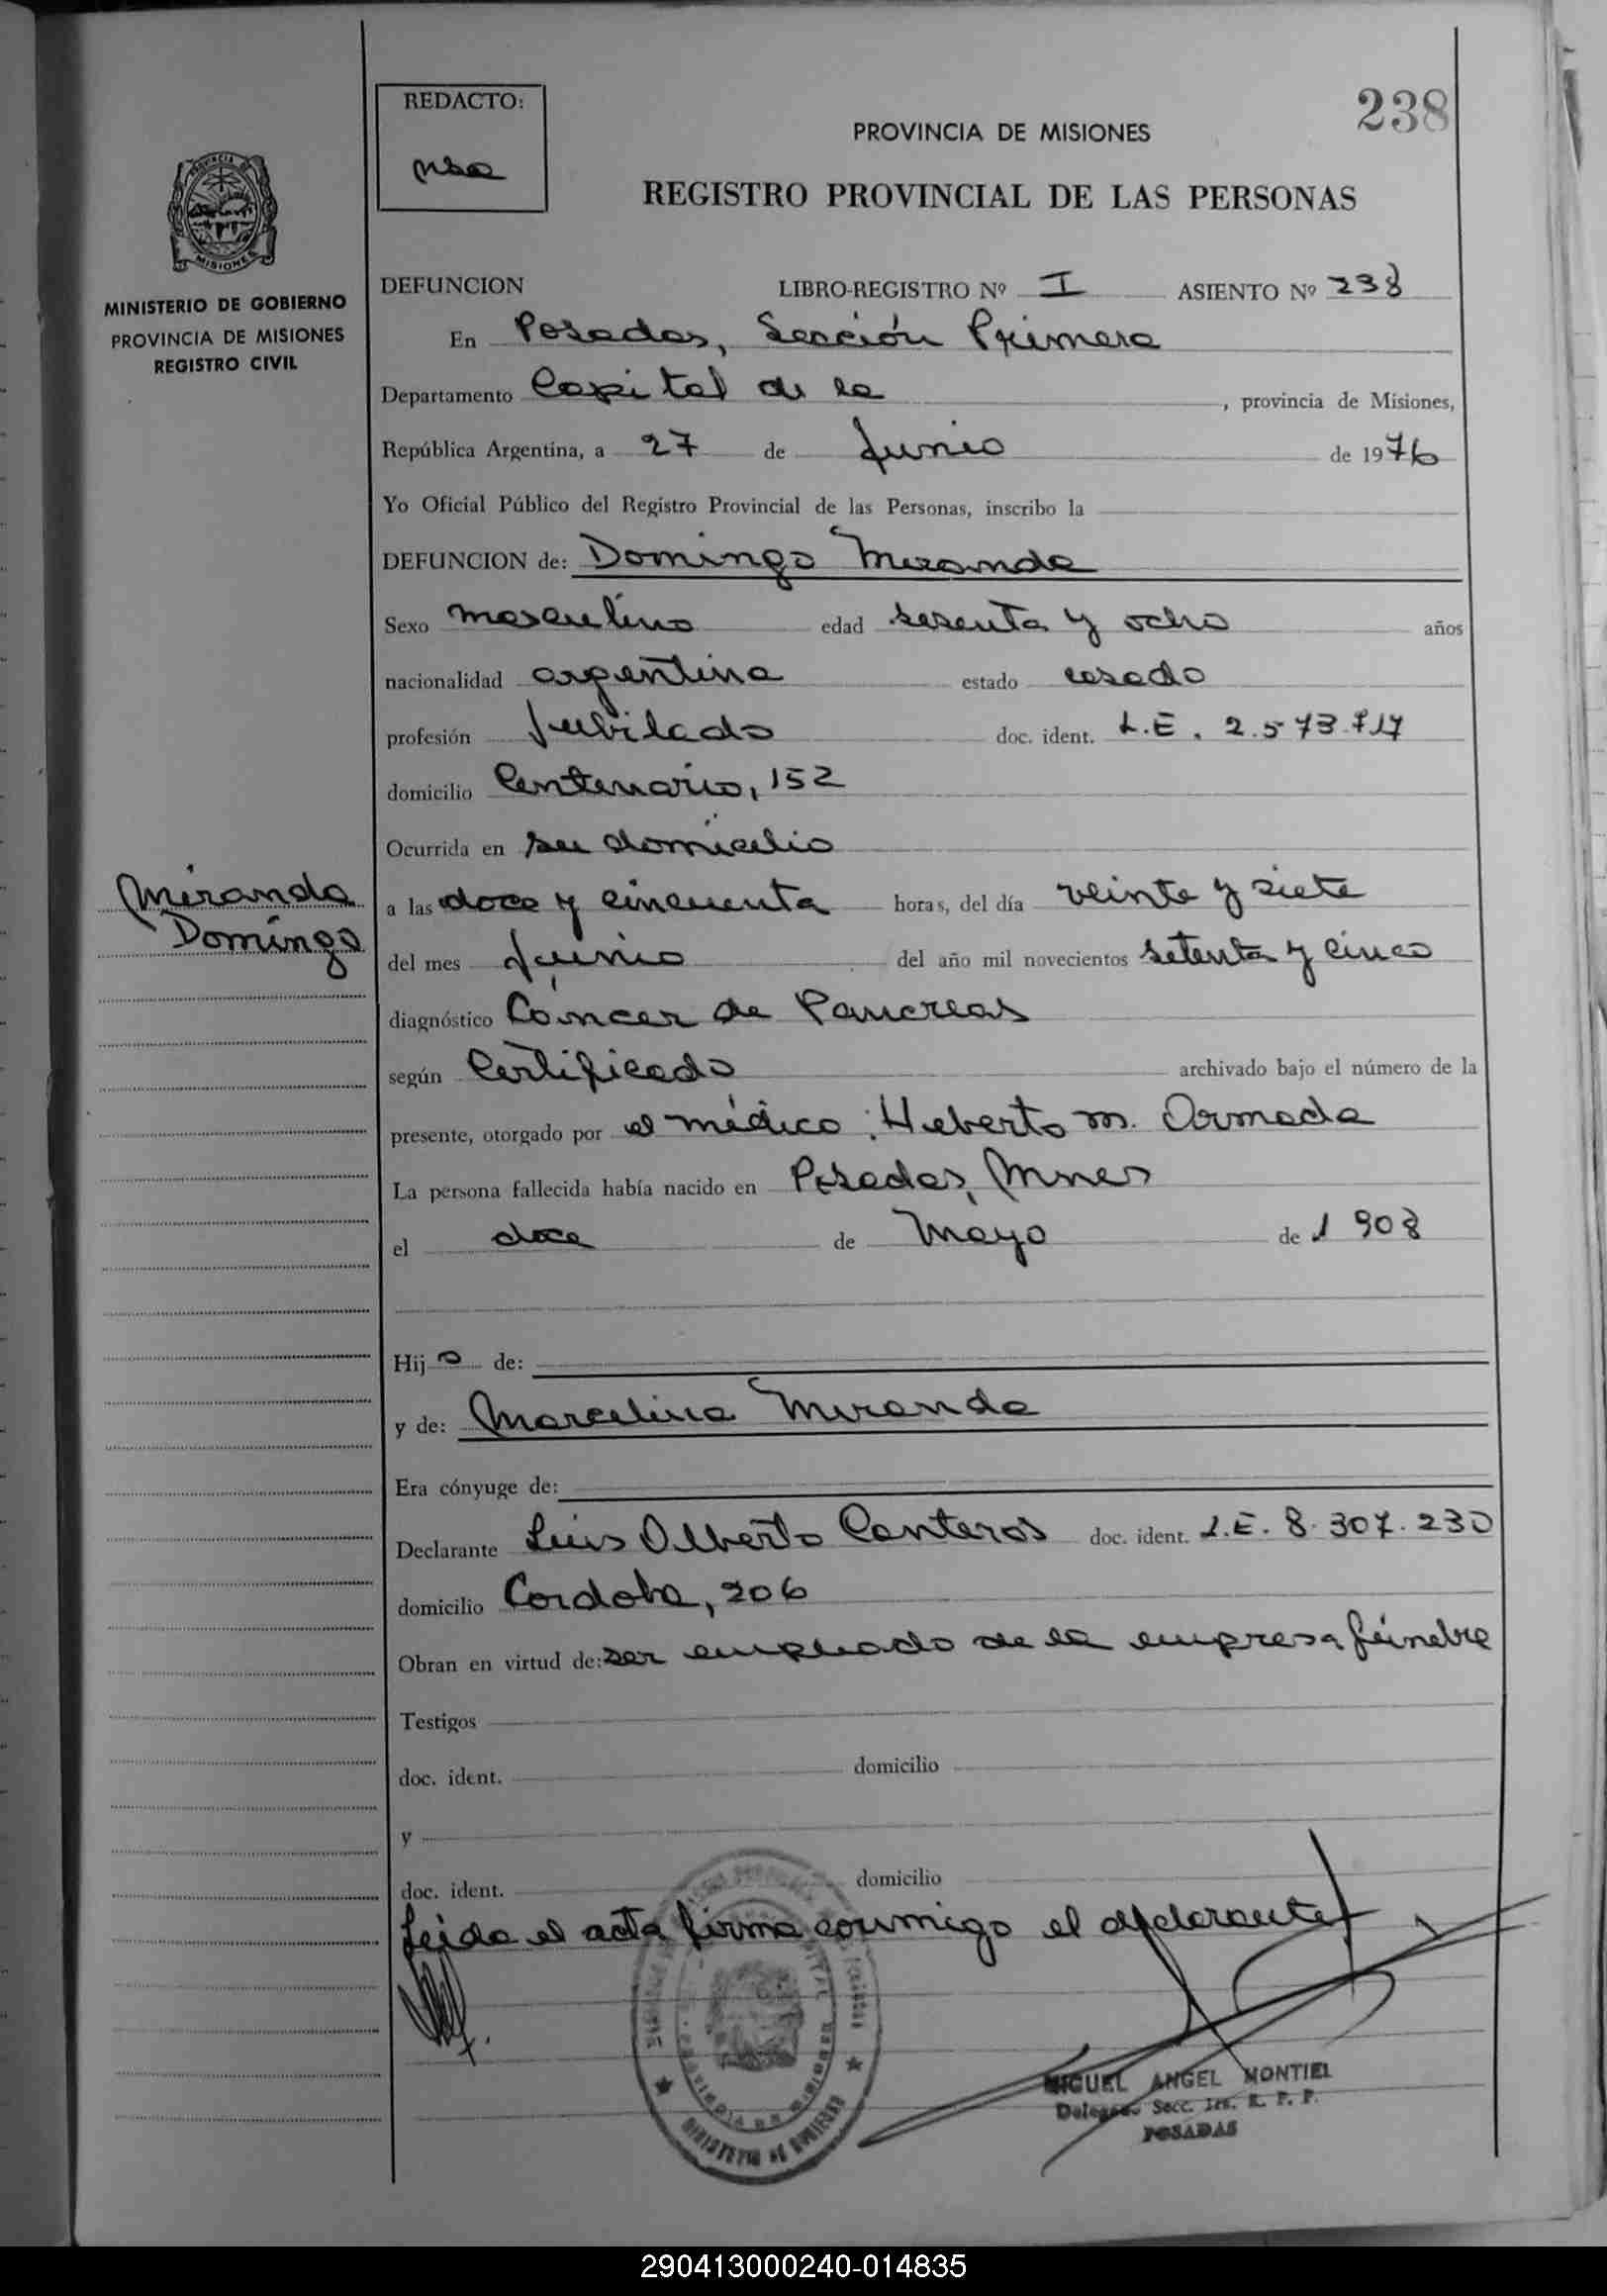 238
REDACTO:
PROVINCIA DE MISIONES
REGISTRO PROVINCIAL DE LAS PERSONAS
MISIONES
MINISTERIO DE GOBIERNO
PROVINCIA DE MISIONES
REGISTRO CIVIL
DEFUNCION LIBRO-REGISTRO Nº I ASIENTO Nº 238
En Posadas, Sección Primera
Departamento Capital de la , provincia de Misiones,
República Argentina, a 27 de Junio de 1976
Yo Oficial Público del Registro Provincial de las Personas, inscribo la
DEFUNCION de: Domingo Miranda
Sexo masculino edad sesenta y ocho años
nacionalidad argentina estado casado
profesión Jubilado doc. ident. L.E. 2.573.717
domicilio Centenario, 152
Ocurrida en su domicilio
Miranda
Domingo
a las doce y cincuenta horas, del día veinte y siete
del mes Junio del año mil novecientos setenta y cinco
diagnóstico Cáncer de Pancreas
según Certificado archivado bajo el número de la
presente, otorgado por el médico: Heberto m. Armada
La persona fallecida había nacido en Posadas, Mnes
el doce de Mayo de 1908
Hijo de:
y de: Marcelina Miranda
Era cónyuge de:
Declarante Luis Alberto Canteros doc. ident. L.E. 8.307.230
domicilio Cordoba, 206
Obran en virtud de: ser empleado de la empresa fúnebre
Testigos
doc. ident. domicilio
y
doc. ident. domicilio
Leida el acta firma conmigo el declarante
MIGUEL ANGEL MONTIEL
Delegado Secc. 1ra. R. P. P.
POSADAS
290413000240-014835